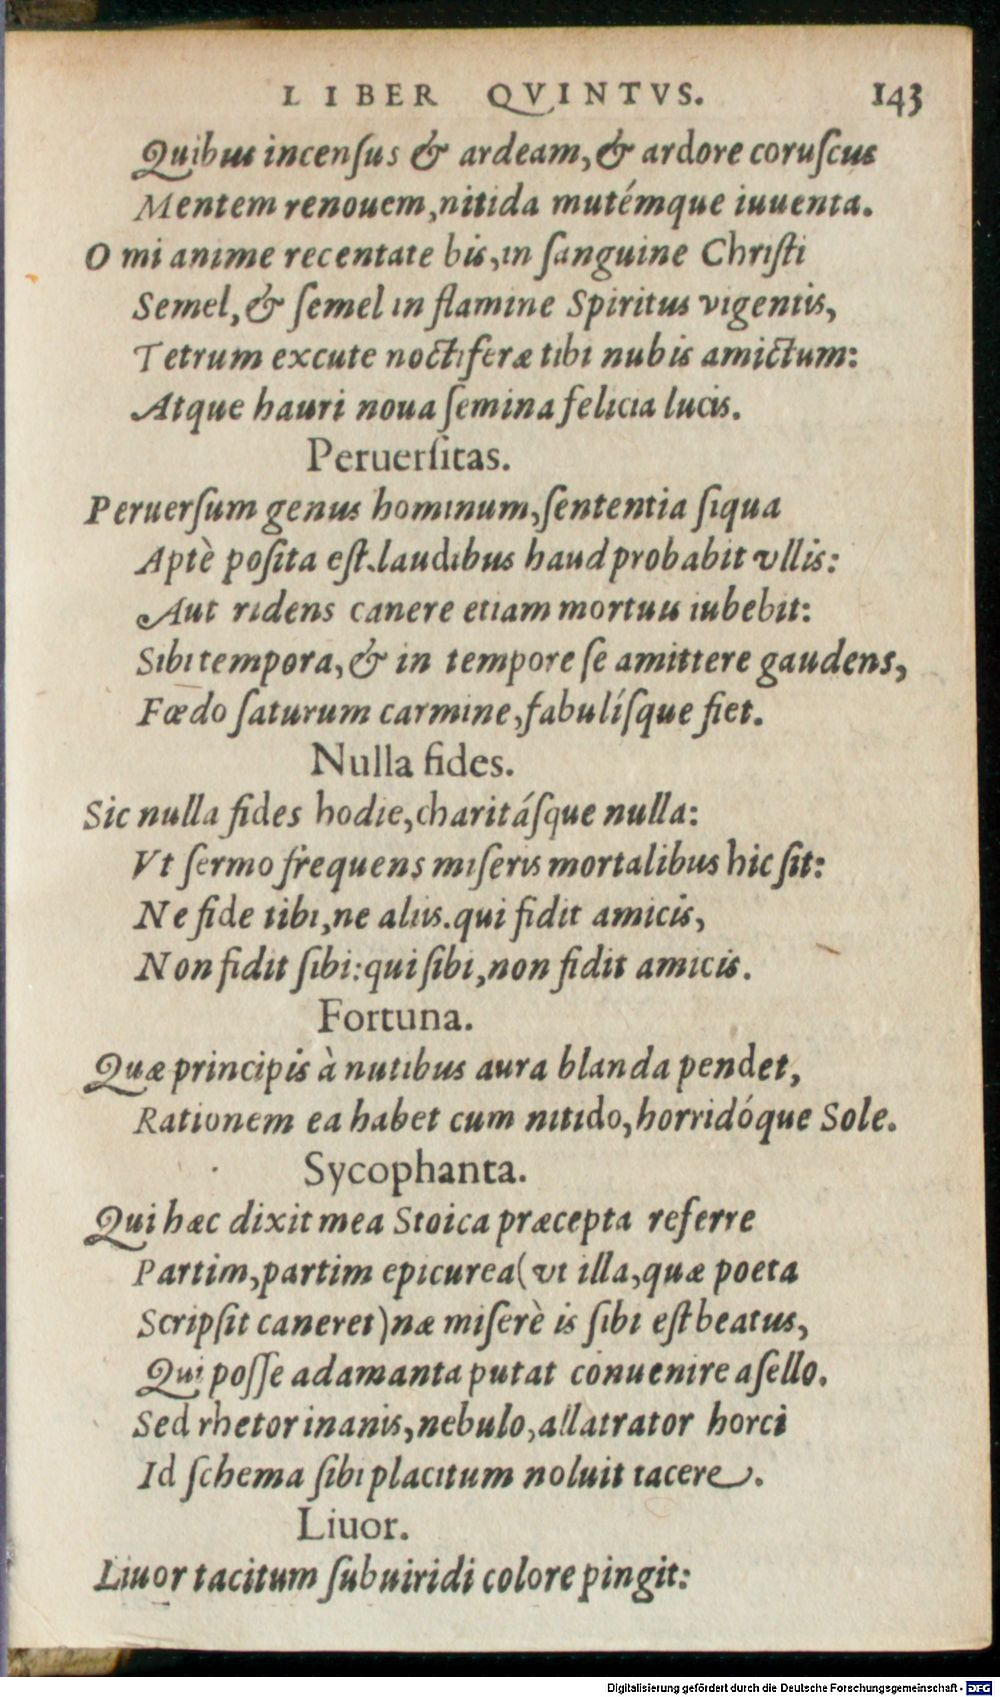 LIBER QVINTVS. 143
Quibus incensus & ardeam, & ardore coruscus
Mentem renouem, nitida mutémque iuuenta.
O mi anime recentate bis, in sanguine Christi
Semel, & semel in flamine Spiritus vigentis,
Tetrum excute noctiferæ tibi nubis amictum:
Atque hauri noua semina felicia lucis.
Peruersitas.
Peruersum genus hominum, sententia siqua
Aptè posita est. laudibus haud probabit vllis:
Aut ridens canere etiam mortuu iubebit:
Sibi tempora, & in tempore se amittere gaudens,
Fœdo saturum carmine, fabulísque fiet.
Nulla fides.
Sic nulla fides hodie, charitásque nulla:
Vt sermo frequens miseris mortalibus hic sit:
Ne fide tibi, ne aliis. qui fidit amicis,
Non fidit sibi: qui sibi, non fidit amicis.
Fortuna.
Quæ principis à nutibus aura blanda pendet,
Rationem ea habet cum nitido, horridóque Sole.
Sycophanta.
Qui hæc dixit mea Stoica præcepta referre
Partim, partim epicurea (vt illa, quæ poeta
Scripsit caneret) næ miserè is sibi est beatus,
Qui posse adamanta putat conuenire asello.
Sed rhetor inanis, nebulo, allatrator horci
Id schema sibi placitum noluit tacere.
Liuor.
Liuor tacitum subuiridi colore pingit:
Digitalisierung gefördert durch die Deutsche Forschungsgemeinschaft - DFG